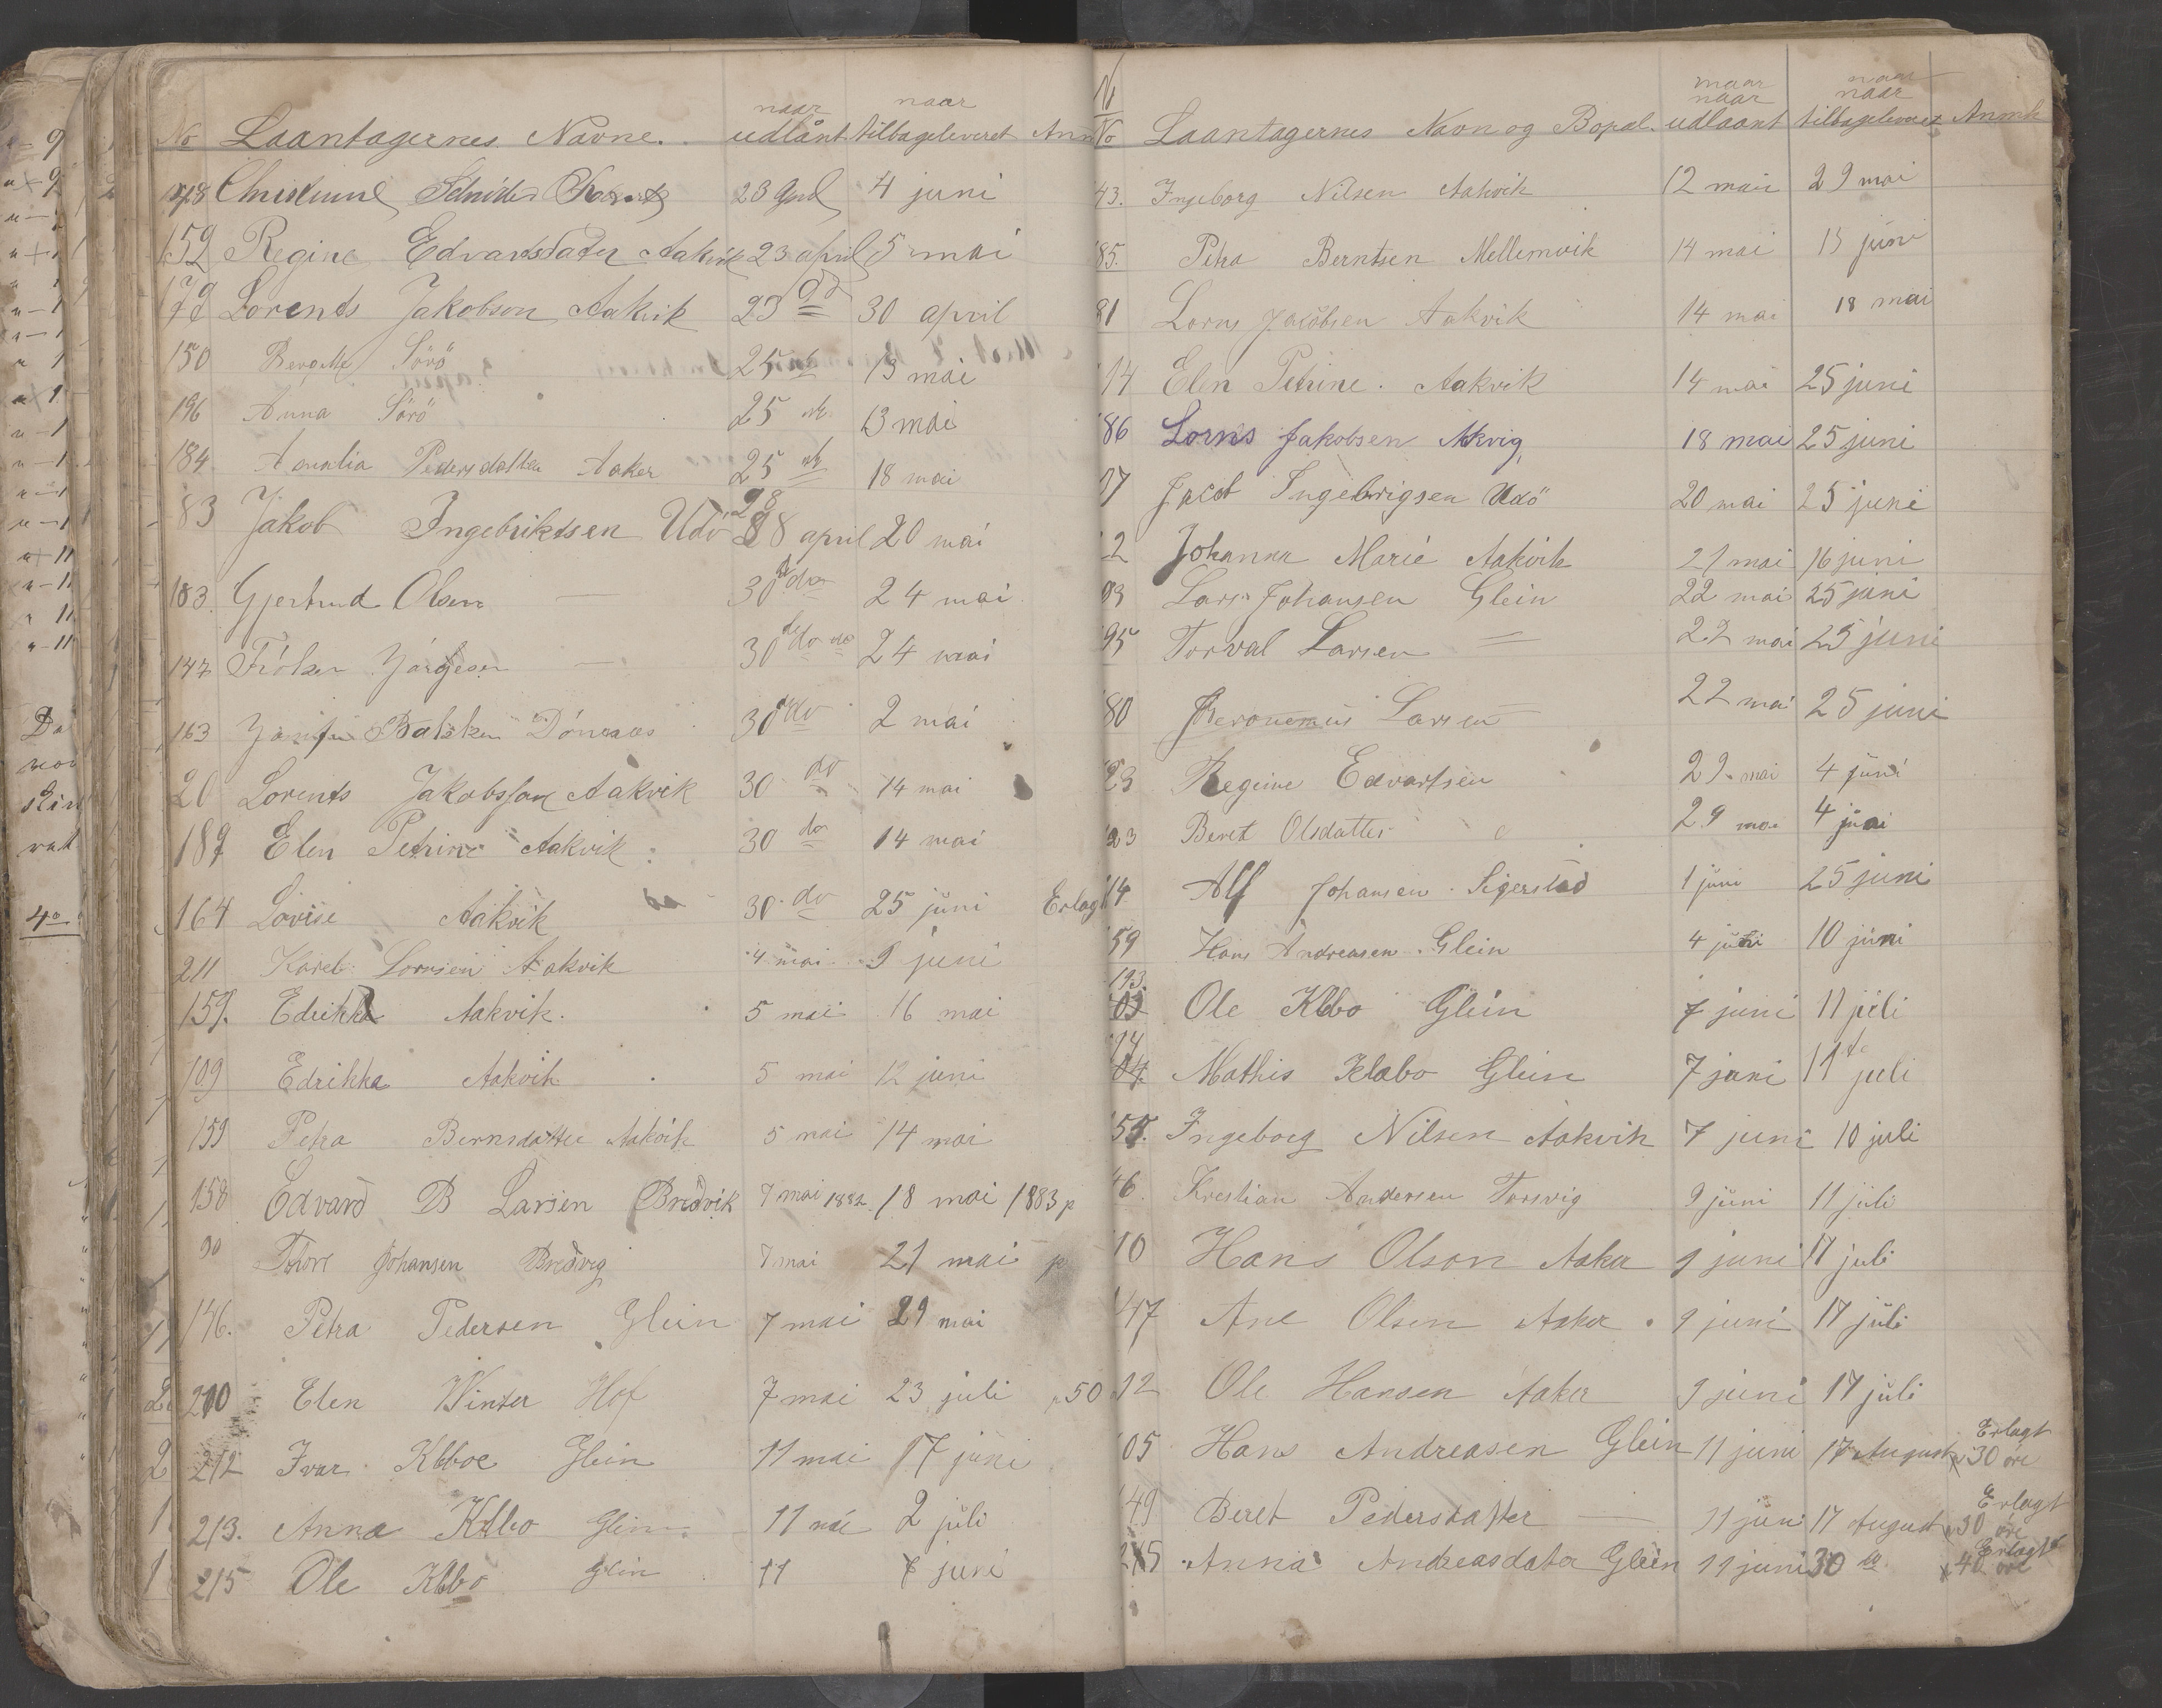 naar naar
No Laantagernes Navne. udlånt tilbageleveret Anm
148 Christiine 23 April 4 juni
152 Regine Edvardsdater Aakvik 23 april 5 mai
178 Lorents Jakobson Aakvik 23 do 30 april
150 Bergette Sörö 25 13 mai
196 Anna Sörö 25 13 mai
184 Amalia Pedersdatter Aaker 25 18 mai
83 Jakob Ingebriktsen Udö 28 april 20 mai
183. Gjertrud Olsen — 30 do 24 mai
147 — 30 do 24 mai
163 Dönesaas 30 do 2 mai
20 Lorents Jakobsson Aakvik 30 do 14 mai
187 Elen Petrine Aakvik 30 do 14 mai
164 Lovise Aakvik 30 do 25 juni Erlagt
211 Karel Lornsen Aakvik 4 mai 9 juni
157. Edrikka Aakvik. 5 mai 16 mai
109 Edrikka Aakvik 5 mai 12 juni
159 Petra Bernsdatter Aakvik 5 mai 14 mai
158 Edvard B Larsen Bredvik 7 mai 1882 18 mai 1883 p
90 Thore Johansen Bredvig 7 mai 21 mai p
146. Petra Pedersen Glein 7 mai 29 mai
210 Elen Winter Hof 7 mai 23 juli 50
212 Ivar Klboe Glein 11 mai 17 juni
213. Anna Klbo Glein 11 mai 2 juli
215 Ole Klbo Glein 11 7 juni
naar naar
naar naar
No Laantagernes Navn og Bopæl. udlaant tilbageleveret Anmk
43. Ingeborg Nilsen Aakvik 12 mai 29 mai
85. Petra Berntsen Mellemvik 14 mai 15 juni
81 Lorns Jacobsen Aakvik 14 mai 18 mai
14 Elen Petrine. Aakvik 14 mai 25 juni
86 Lorns Jakobsen Akvig, 18 mai 25 juni
07 Jacob Ingebrigsen Udö 20 mai 25 juni
2 Johanna Marie Aakvik 21 mai 16 juni
93 Lars Johansen Glein 22 mai 25 juni
95 Torval Larsen = 22 mai 25 juni
80 Heronemus Larsen = 22 mai 25 juni
23 Regine Edvartsen 29. mai 4 juni
23 Beret Olsdatter 29 mai 4 juni
14 Alf Johansen Sigerstad 1 juni 25 juni
59 Hans Andreasen. Glein 4 juni 10 juni
193.
03 Ole Klbo Glein 7 juni 11 juli
14
04. Mathis Klabo Glein 7 juni 11te juli
55. Ingeborg Nilsen Aakvik 7 juni 10 juli
46. Krestian Andersen Torsvig 9 juni 11 juli
10 Hans Olson Aaker 9 juni 17 juli
47 Ane Olsen Aaker. 9 juni 17 juli
12 Ole Hansen Aaker 9 juni 17 juli
05 Hans Andreasen Glein 11 juni 17 August Erlagt 30 öre
49 Beret Pedersdatter — 11 juni 17 August Erlagt 30 öre
215 Anna Andreasdater Glein 11 juni 30 do Erlagt 40 öre